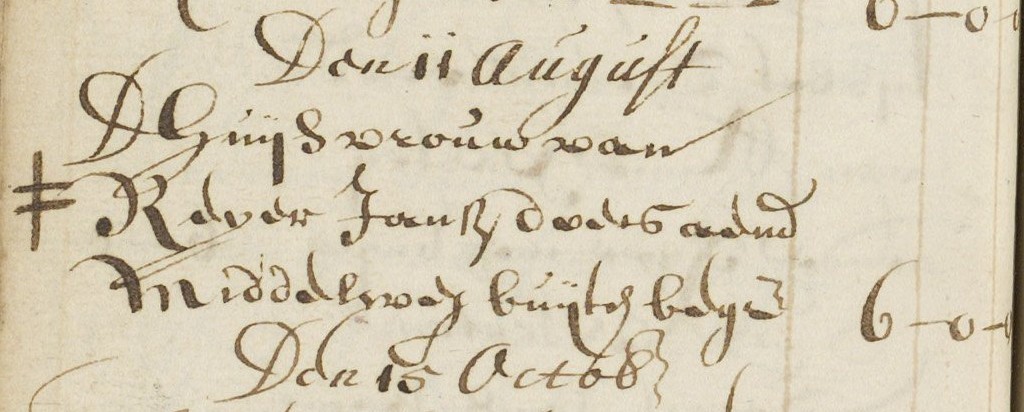 6 - 0
Den 11 August
D Huijsvrouw van
Reyer Jansz dvers aend
Middelweg buijten begr
6 - 0 -
Den 15 Octob